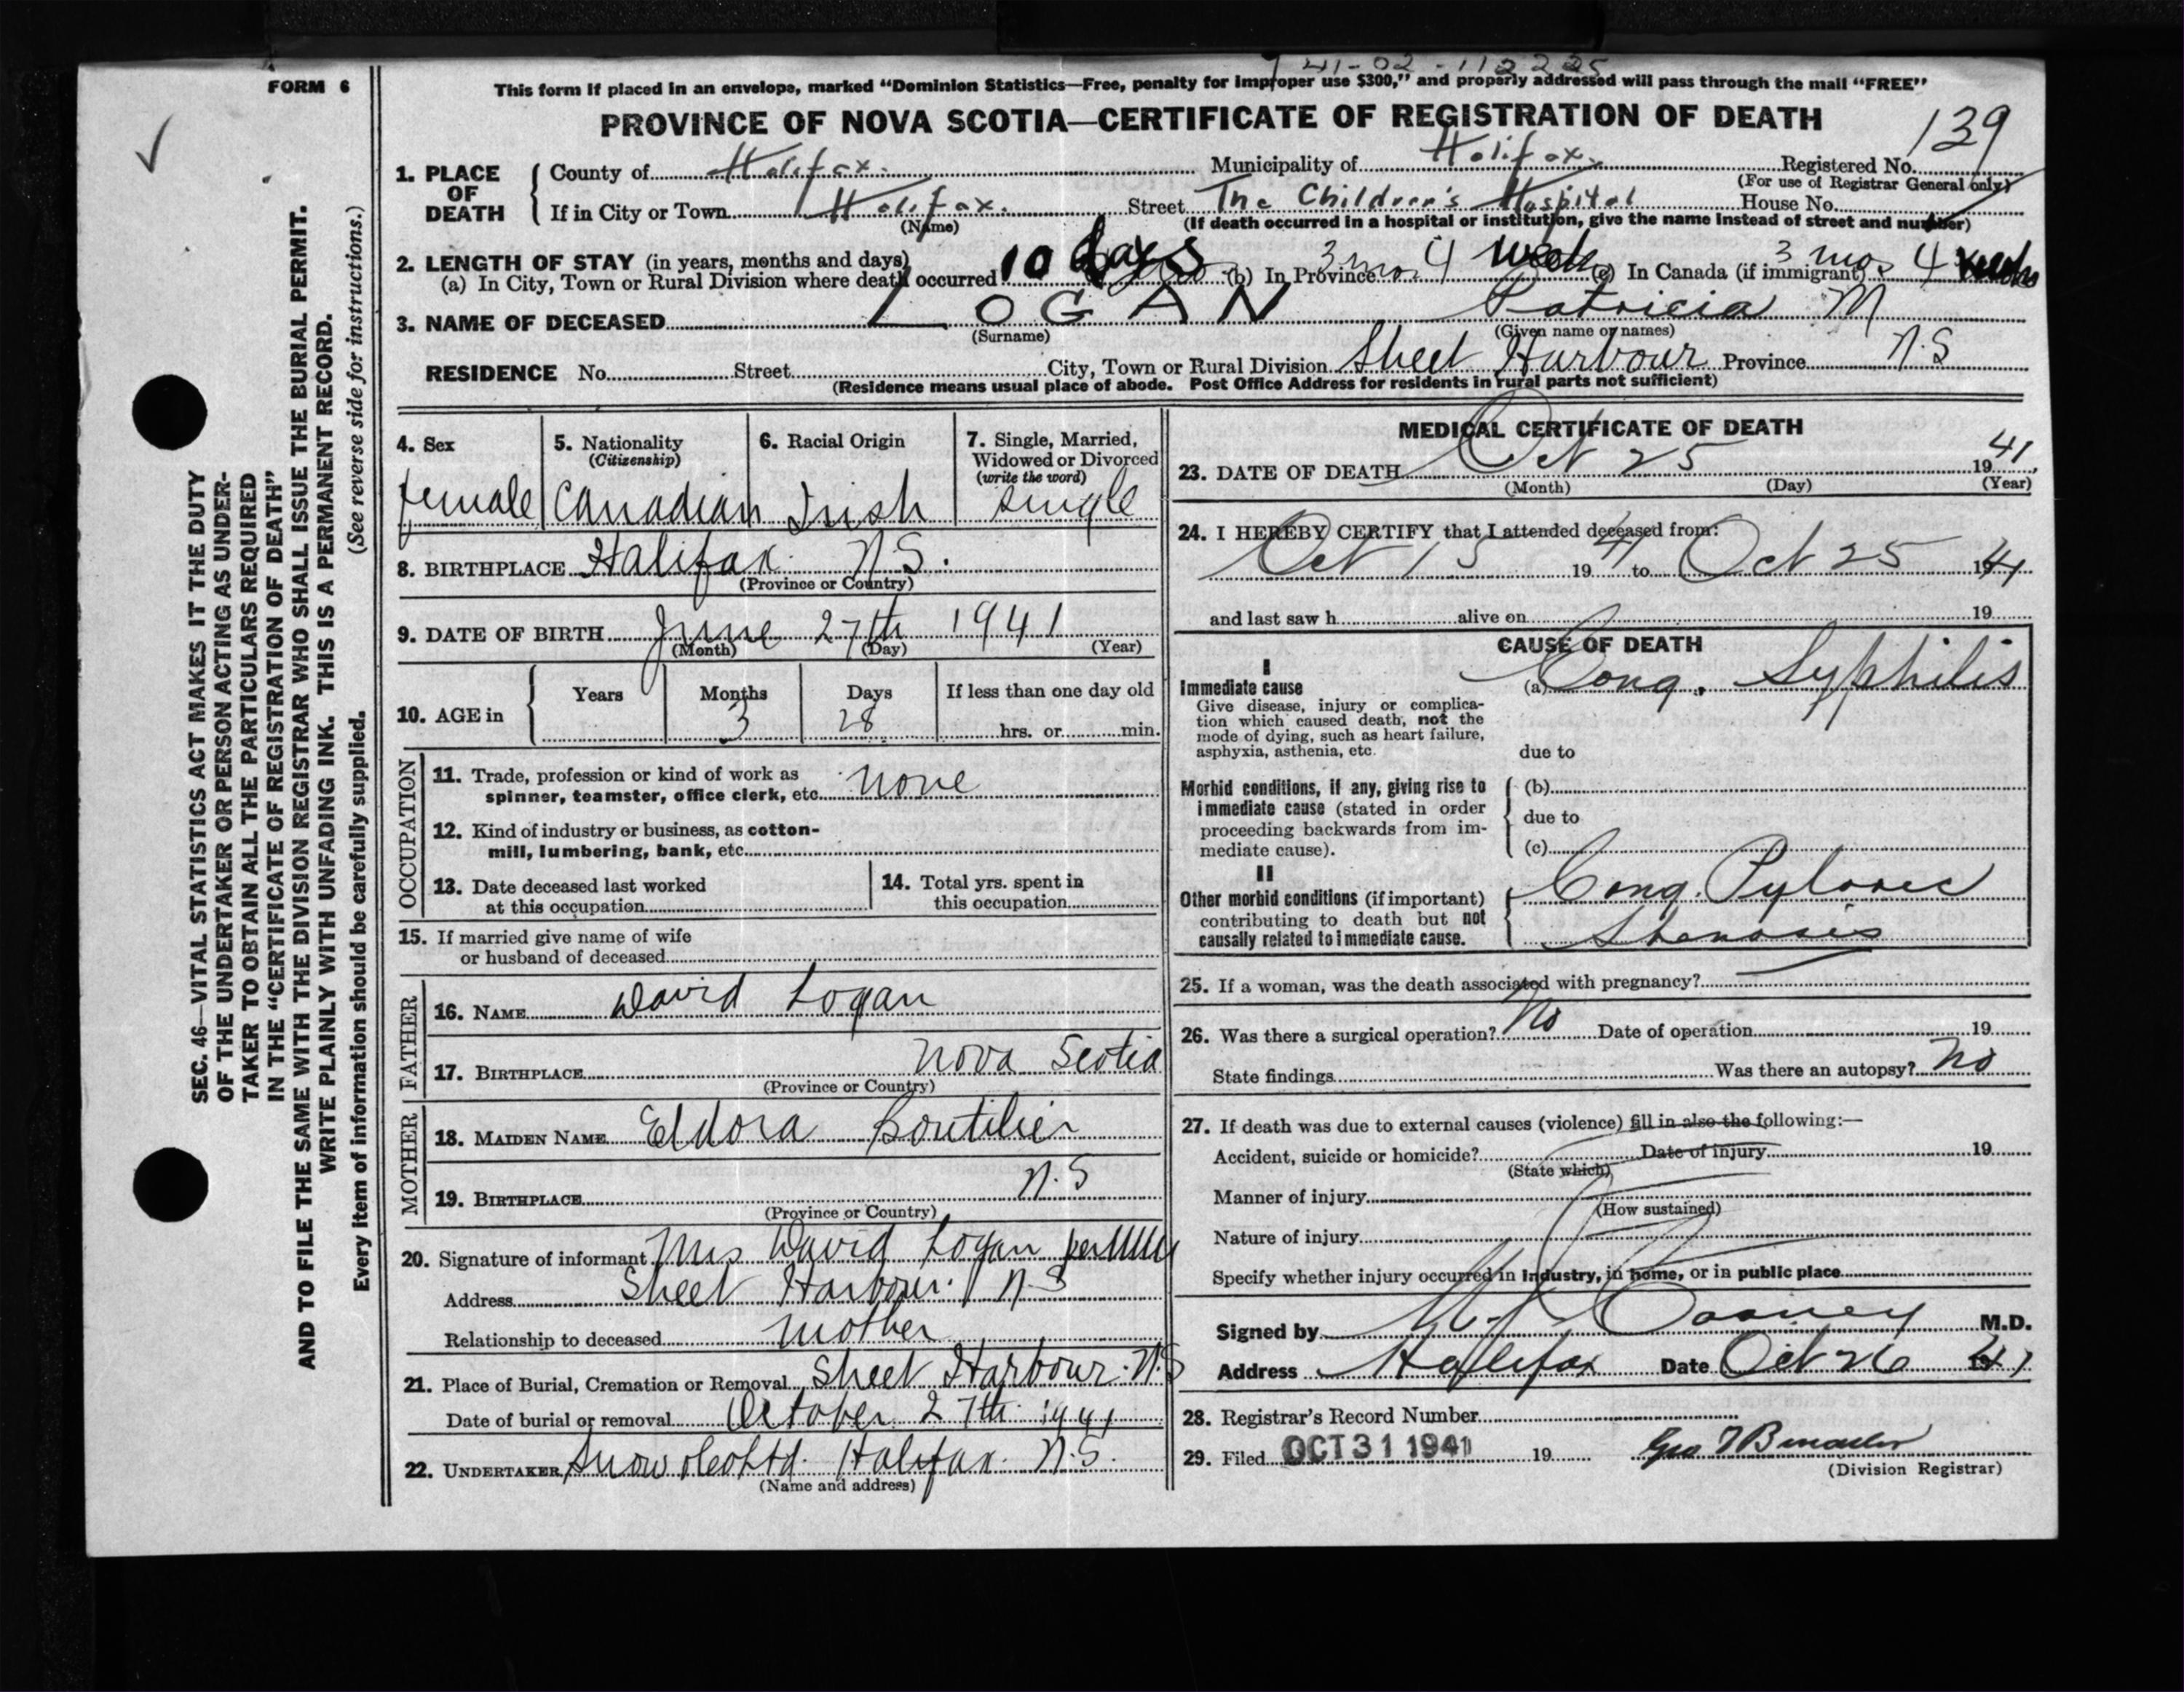 41-02-112225
FORM 6
This form if placed in an envelope, marked "Dominion Statistics—Free, penalty for improper use $300," and properly addressed will pass through the mail "FREE"
PROVINCE OF NOVA SCOTIA—CERTIFICATE OF REGISTRATION OF DEATH
139
1. PLACE OF DEATH
County of Halifax. Municipality of Halifax. Registered No.
(For use of Registrar General only)
If in City or Town Halifax. Street The Children's Hospital House No.
(Name) (If death occurred in a hospital or institution, give the name instead of street and number)
2. LENGTH OF STAY (in years, months and days)
(a) In City, Town or Rural Division where death occurred 10 days (b) In Province 3 mo. 4 weeks (c) In Canada (if immigrant) 3 mos 4 weeks
3. NAME OF DECEASED LOGAN Patricia M
(Surname) (Given name or names)
RESIDENCE No. Street City, Town or Rural Division Sheet Harbour Province N.S
(Residence means usual place of abode. Post Office Address for residents in rural parts not sufficient)
4. Sex
female
5. Nationality
(Citizenship)
Canadian
6. Racial Origin
Irish
7. Single, Married,
Widowed or Divorced
(write the word)
single
8. BIRTHPLACE Halifax. N.S.
(Province or Country)
9. DATE OF BIRTH June 27th 1941
(Month) (Day) (Year)
10. AGE in
Years Months Days If less than one day old
3 28 hrs. or min.
OCCUPATION
11. Trade, profession or kind of work as
spinner, teamster, office clerk, etc. none
12. Kind of industry or business, as cotton-
mill, lumbering, bank, etc.
13. Date deceased last worked
at this occupation
14. Total yrs. spent in
this occupation
15. If married give name of wife
or husband of deceased
FATHER
16. NAME David Logan
17. BIRTHPLACE Nova Scotia
(Province or Country)
MOTHER
18. MAIDEN NAME Eldora Boutilier
19. BIRTHPLACE N.S
(Province or Country)
20. Signature of informant Mrs David Logan per
Address Sheet Harbour. N.S
Relationship to deceased mother
21. Place of Burial, Cremation or Removal Sheet Harbour. N.S
Date of burial or removal October 27th 1941
22. UNDERTAKER Snow & Co Ltd. Halifax. N.S.
(Name and address)
MEDICAL CERTIFICATE OF DEATH
23. DATE OF DEATH Oct 25 1941
(Month) (Day) (Year)
24. I HEREBY CERTIFY that I attended deceased from:
Oct 15 1941 to Oct 25 1941
and last saw h alive on 19
CAUSE OF DEATH
I
Immediate cause
Give disease, injury or complica-
tion which caused death, not the
mode of dying, such as heart failure,
asphyxia, asthenia, etc.
(a) Cong. Syphilis
due to
Morbid conditions, if any, giving rise to
immediate cause (stated in order
proceeding backwards from im-
mediate cause).
(b)
due to
(c)
II
Other morbid conditions (if important)
contributing to death but not
causally related to immediate cause.
Cong. Pyloric
Stenosis
25. If a woman, was the death associated with pregnancy?
26. Was there a surgical operation? No Date of operation 19
State findings Was there an autopsy? No
27. If death was due to external causes (violence) fill in also the following:—
Accident, suicide or homicide? Date of injury 19
(State which)
Manner of injury
(How sustained)
Nature of injury
Specify whether injury occurred in Industry, in home, or in public place
Signed by Cooney M.D.
Address Halifax Date Oct 26 1941
28. Registrar's Record Number
29. Filed OCT 31 1941 19
(Division Registrar)
SEC. 46—VITAL STATISTICS ACT MAKES IT THE DUTY
OF THE UNDERTAKER OR PERSON ACTING AS UNDER-
TAKER TO OBTAIN ALL THE PARTICULARS REQUIRED
IN THE "CERTIFICATE OF REGISTRATION OF DEATH"
AND TO FILE THE SAME WITH THE DIVISION REGISTRAR WHO SHALL ISSUE THE BURIAL PERMIT.
WRITE PLAINLY WITH UNFADING INK. THIS IS A PERMANENT RECORD.
Every item of information should be carefully supplied. (See reverse side for instructions.)